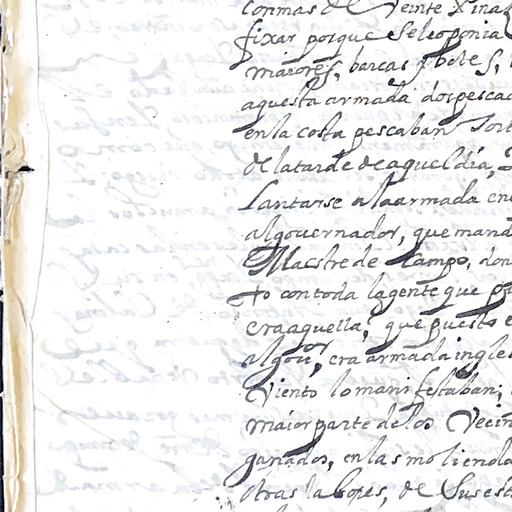 con mas de Veinte
fixar porque se le oponia
maiores, barcas y boles,
aquesta armada dos pesca
en la costa pescaban
de la tarde de aquel dia,
Lantarse a la armada en
al gouernador, que mand
Maestre de Campo, don
to con toda la gente que
era aquella, que puesto e
al gouor, era armada ingles
Viento lo manifestaban;
maior parte de los Vecin
ganados, en las moliendas
otras labores, de sus est